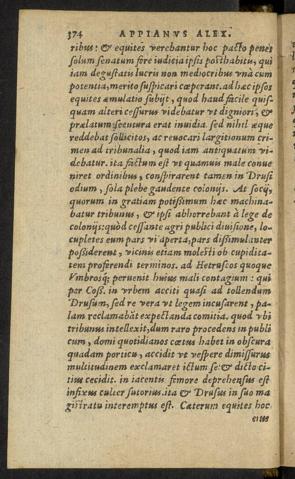 374 APPIANVS ALEX.
ribus: & equites verebantur hoc pacto penes
solum senatum fore iudicia ipsi posthabitu, qui
iam degustatis lucris non mediocribus vnà cum
potentia, merito suspicari cœperant. ad hæc ipsos
equites æmulatio subijt, quod haud facile quis-
quam alteri cessurus videbatur vt digniori, &
prælatum secutura erat inuidia. sed nihil æque
reddebat sollicitos, ac reuocari largitionum cri-
men ad tribunalia, quod iam antiquatum vi-
debatur. ita factum est vt quamuis male conue
niret ordinibus, conspirarent tamen in Drusi
odium, sola plebe gaudente colonijs. At socij,
quorum in gratiam potissimum hæc machina-
batur tribunus, & ipsi abhorrebant à lege de
colonijs: quòd cessante agri publici diuisione, lo-
cupletes eum pars vi aperta, pars dissimulanter
possiderent, vicinis etiam molesti ob cupidita-
tem proferendi terminos. ad Hetruscos quoque
Vmbrosq; peruenit huius mali contagium: qui
per Coss. in vrbem acciti quasi ad tollendum
Drusum, sed re vera vt legem incusarent, pa-
lam reclamabāt expectanda comitia. quod vbi
tribunus intellexit, dum raro procedens in publi
cum, domi quotidianos cœtus habet in obscura
quadam porticu, accidit vt vespere dimissurus
multitudinem exclamaret ictum se: & dicto ci-
tius cecidit. in iacentis femore deprehensus est
infixus culter sutorius. ita & Drusus in suo ma
gistratu interemptus est. Cæterum equites hoc
eius